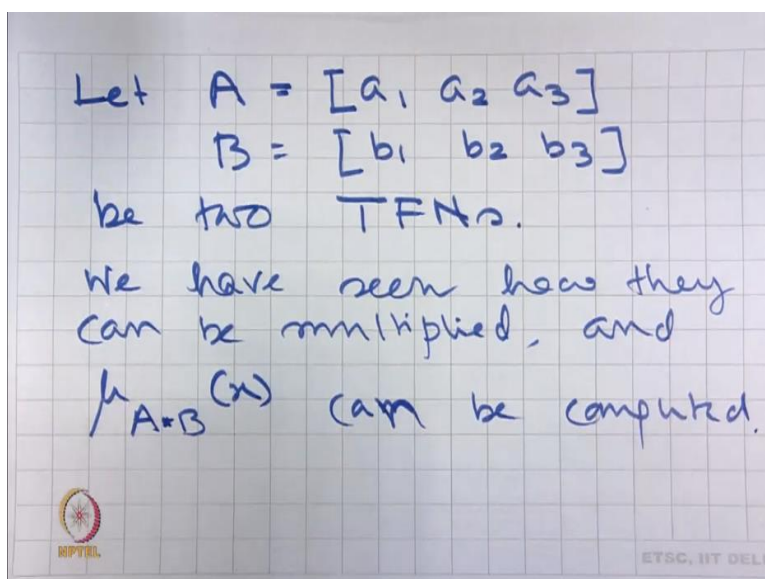 Let A = [a₁ a₂ a₃]
B = [b₁ b₂ b₃]
be two TFNs.
We have seen how they
can be multiplied, and
μ_{A*B}(x) can be computed.
NPTEL
ETSC, IIT DEL